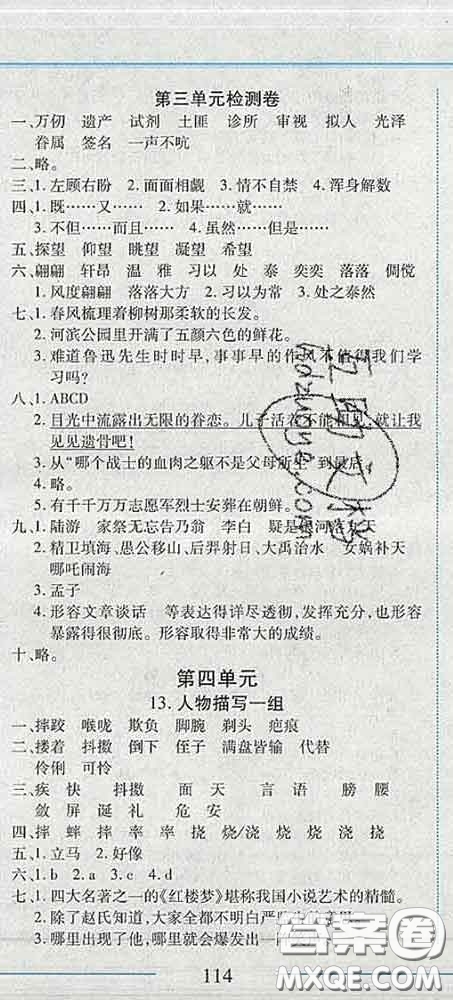 第三单元检测卷
一、万仞 遗产 试剂 土匪 诊所 审视 拟人 光泽
眷属 签名 一声不吭
二、略。
三、1. 左顾右盼 2. 面面相觑 3. 情不自禁 4. 浑身解数
四、1. 既……又…… 2. 如果……就……
3. 不但……而且…… 4. 虽然……但是……
五、探望 仰望 眺望 凝望 希望
六、翩翩 轩昂 温 雅 习以 处 泰 奕奕 落落 倜傥
1. 风度翩翩 落落大方 2. 习以为常 3. 处之泰然
七、1. 春风梳理着柳树那柔软的长发。
2. 河滨公园里开满了五颜六色的鲜花。
3. 难道鲁迅先生时时早,事事早的作风不值得我们学
习吗?
八、1. ABCD
2. 目光中流露出无限的眷恋。儿子活着不能相见,就让我
见见遗骨吧!
3. 从“哪个战士的血肉之躯不是父母所生”到最后。
4. 略。
5. 有千千万万志愿军烈士安葬在朝鲜。
九、1. 陆游 家祭无忘告乃翁 李白 疑是银河落九天
2. 精卫填海、愚公移山、后羿射日、大禹治水 女娲补天
哪吒闹海
3. 孟子
4. 形容文章谈话 等表达得详尽透彻,发挥充分,也形容
暴露得很彻底。形容取得非常大的成绩。
十、略。
第四单元
13. 人物描写一组
一、摔跤 喉咙 欺负 脚腕 剃头 疤痕
二、搂着 抖擞 倒下 侄子 满盘皆输 代替
伶俐 可怜
三、疾 快 抖擞 面 天 言 语 膀 腰
敛 屏 诞 礼 危 安
四、摔 蟀 摔 率 率 挠 烧/浇 烧 浇 挠
五、1. 立马 2. 好像
六、1. b 2. a 3. c 4. d
七、1. 四大名著之一的《红楼梦》堪称我国小说艺术的精髓。
2. 除了赵氏知道,大家全都不明白严监生的意思。
3. 哪里出现了他,哪里就会爆发出一阵
114
答案圈
MXQE.COM